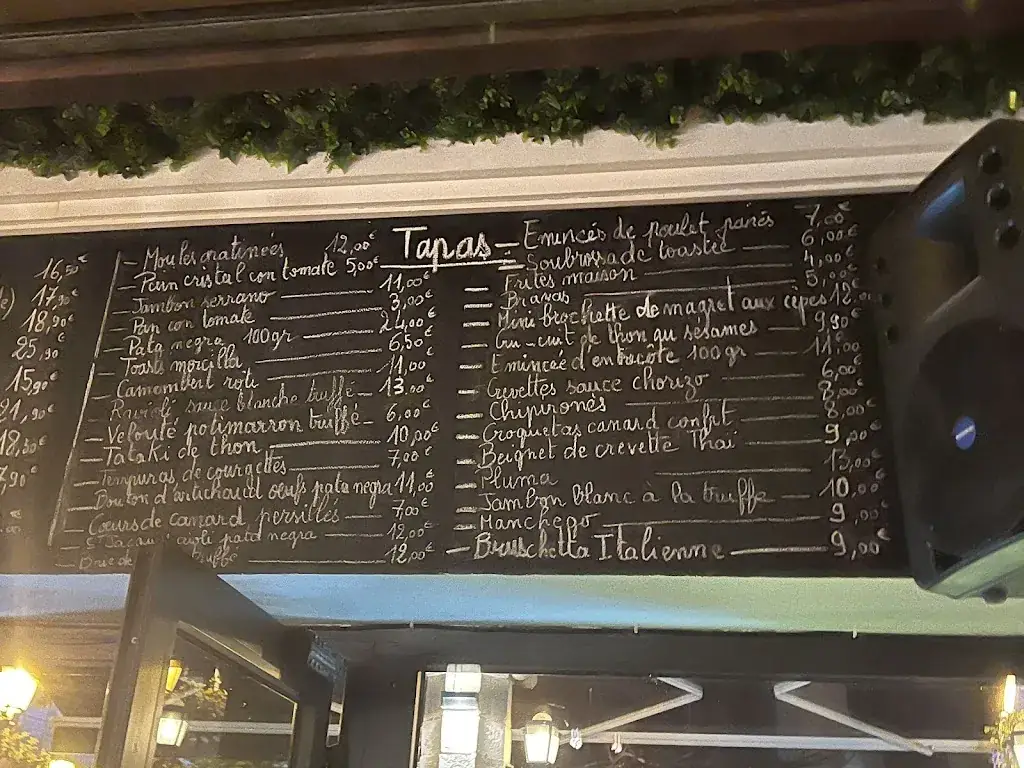 16,50€
17,90€
18,90€
25,90
15,90€
21,90€
18,50€
7,90€
Tapas
- Moules gratinées 12,00€
- Pain cristal con tomate 5,00€
- Jambon serrano 11,00€
- Pan con tomate 3,00€
- Pata negra 100gr 24,00€
- Toasts morcilla 6,50€
- Camembert roti 11,00
- sauce blanche truffé 13,00€
- Velouté potimarron truffé 6,00€
- Tataki de thon 10,00€
- Tempuras de courgettes 7,00€
- d'artichaud oeufs pata negra 11,00
- Coeurs de canard persillés 7,00€
- aioli pata negra 12,00€
- Brie truffé 12,00€
- Emincés de poulet panés 7,00€
- Soubrossade toastée 6,00€
- Frites maison 4,00€
- Bravas 5,00€
- Mini brochette de magret aux cèpes 12,00
- cru-cuit de thon au sésames 9,90€
- Emincée d'entrecote 100gr 11,00€
- Crevettes sauce chorizo 6,00€
- Chipironès 8,00€
- Croquetas canard confit 8,00€
- Beignet de crevette Thaï 9,00€
- Pluma 13,00€
- Jambon blanc à la truffe 10,00€
- Manchego 9,00€
- Bruschetta Italienne 9,00€